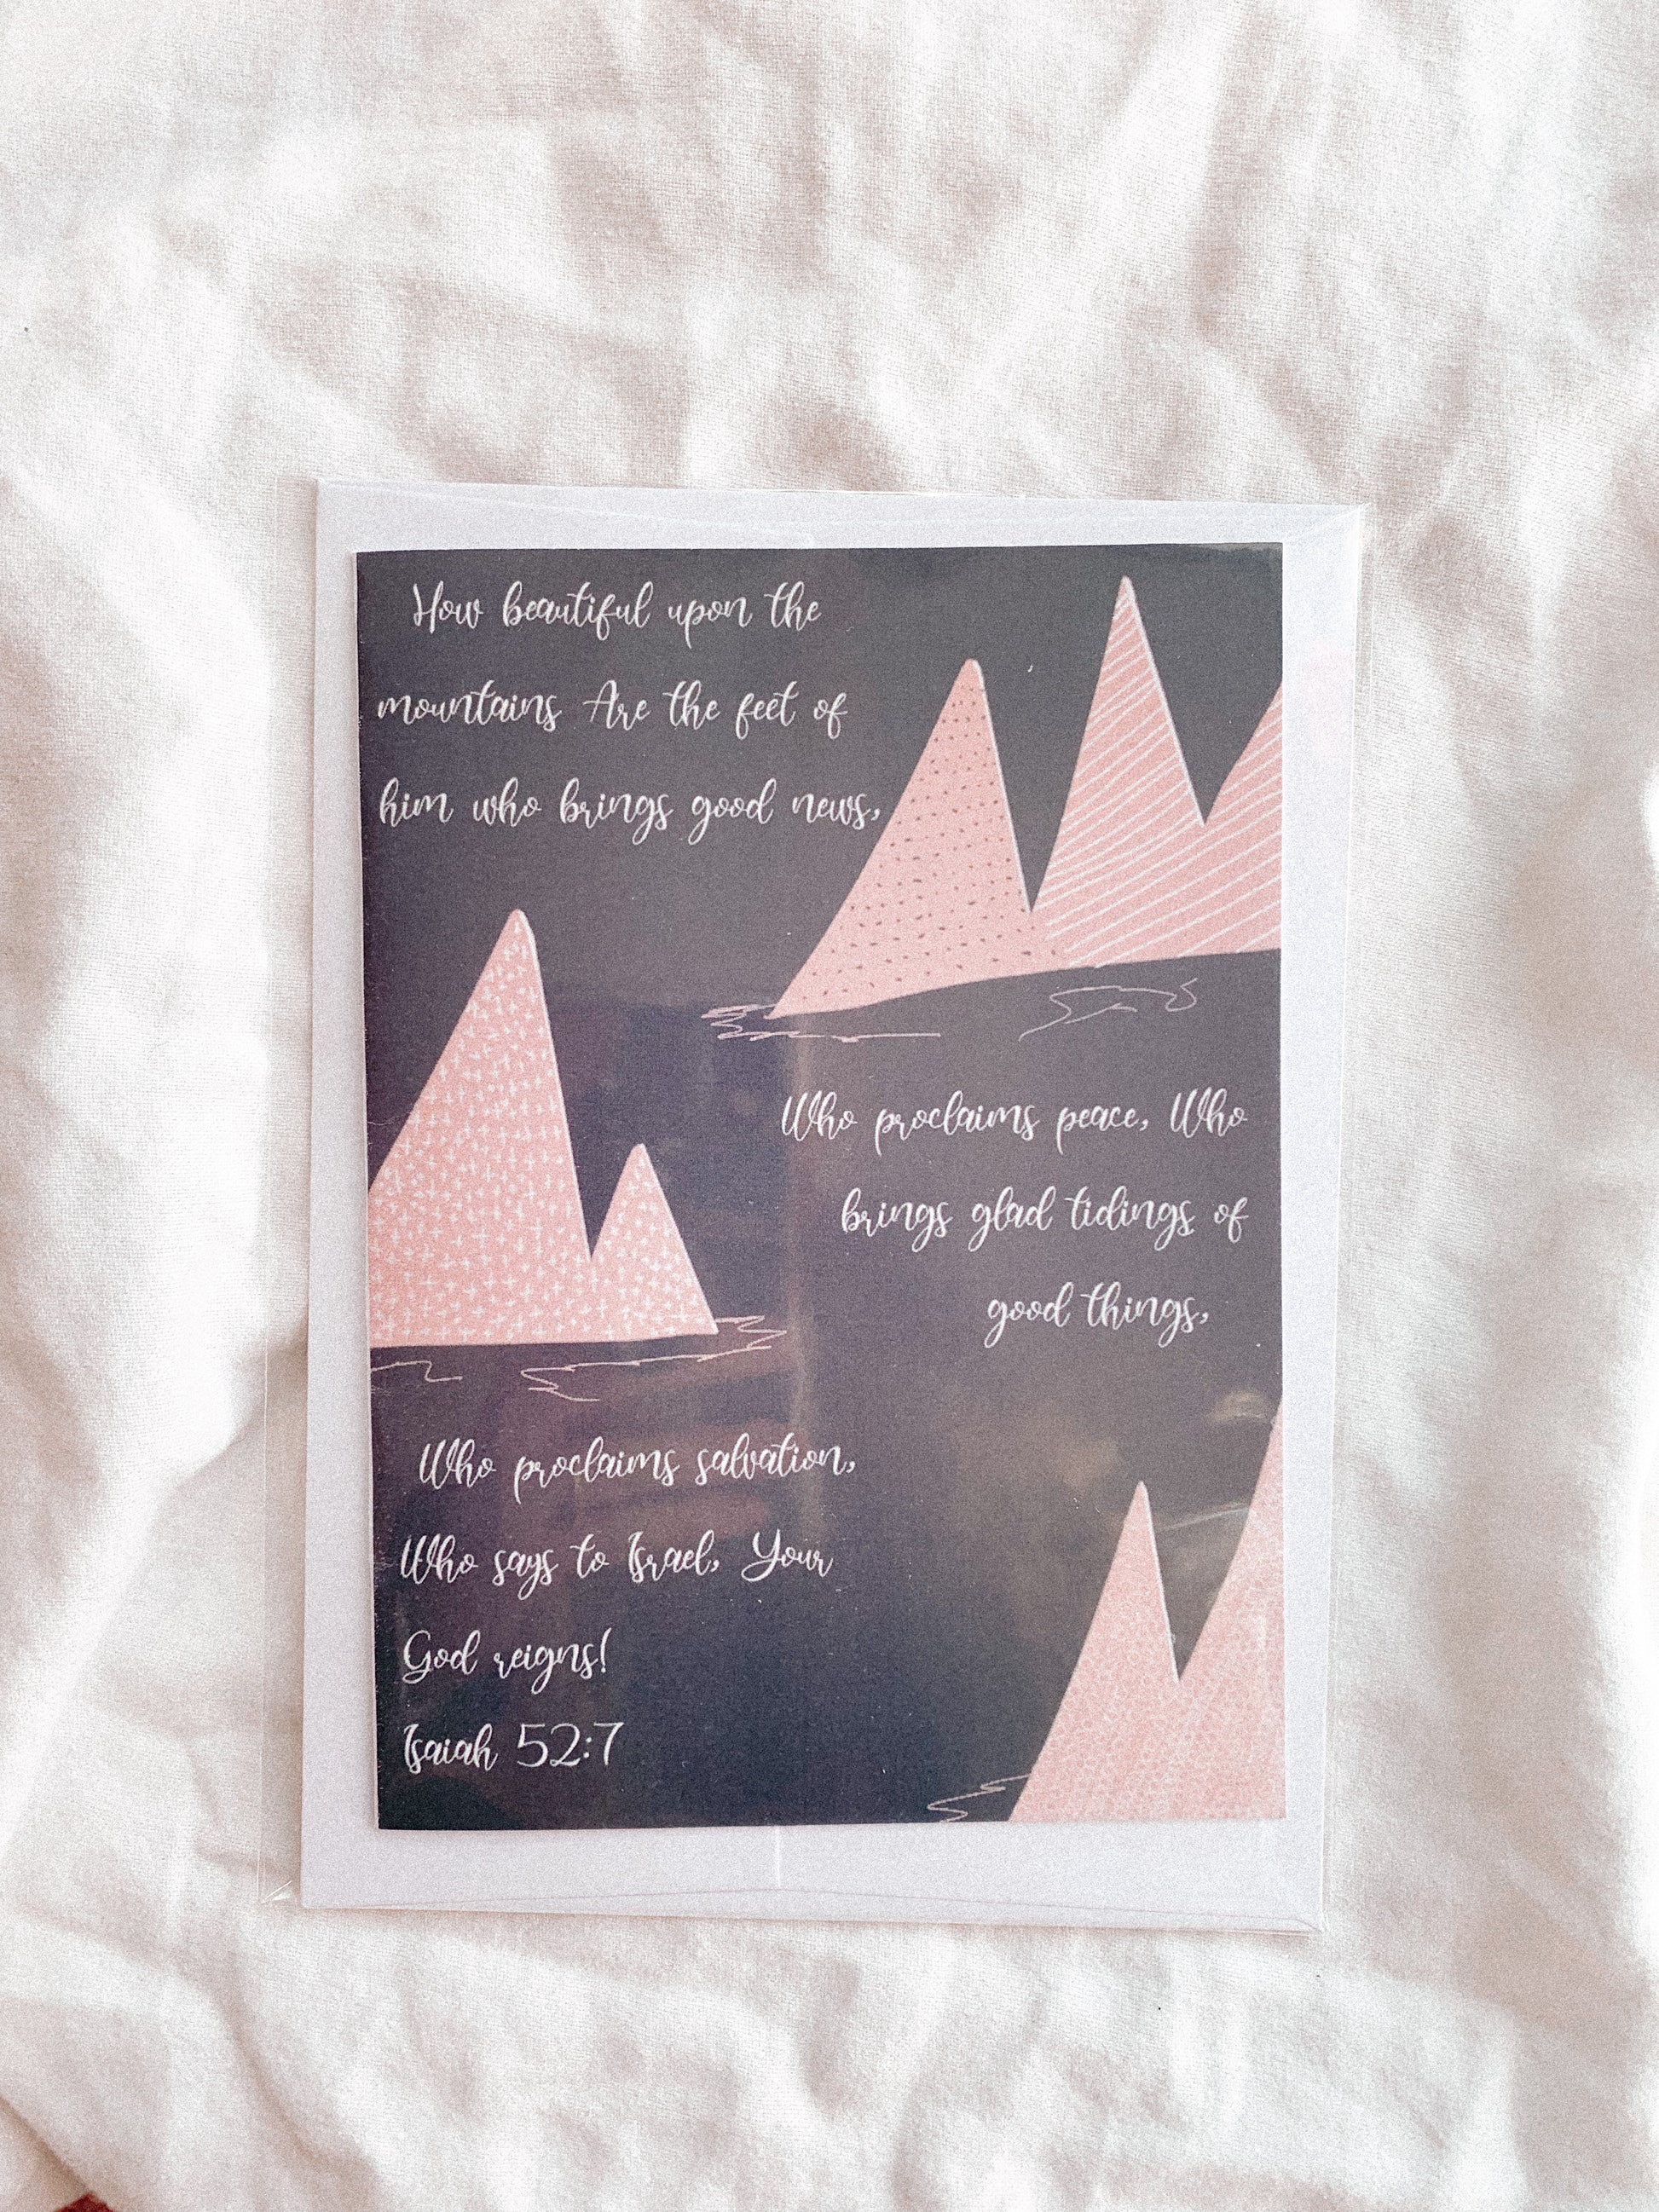 How beautiful upon the
mountains Are the feet of
him who brings good news,
Who proclaims peace, Who
brings glad tidings of
good things,
Who proclaims salvation,
Who says to Israel, Your
God reigns!
Isaiah 52:7